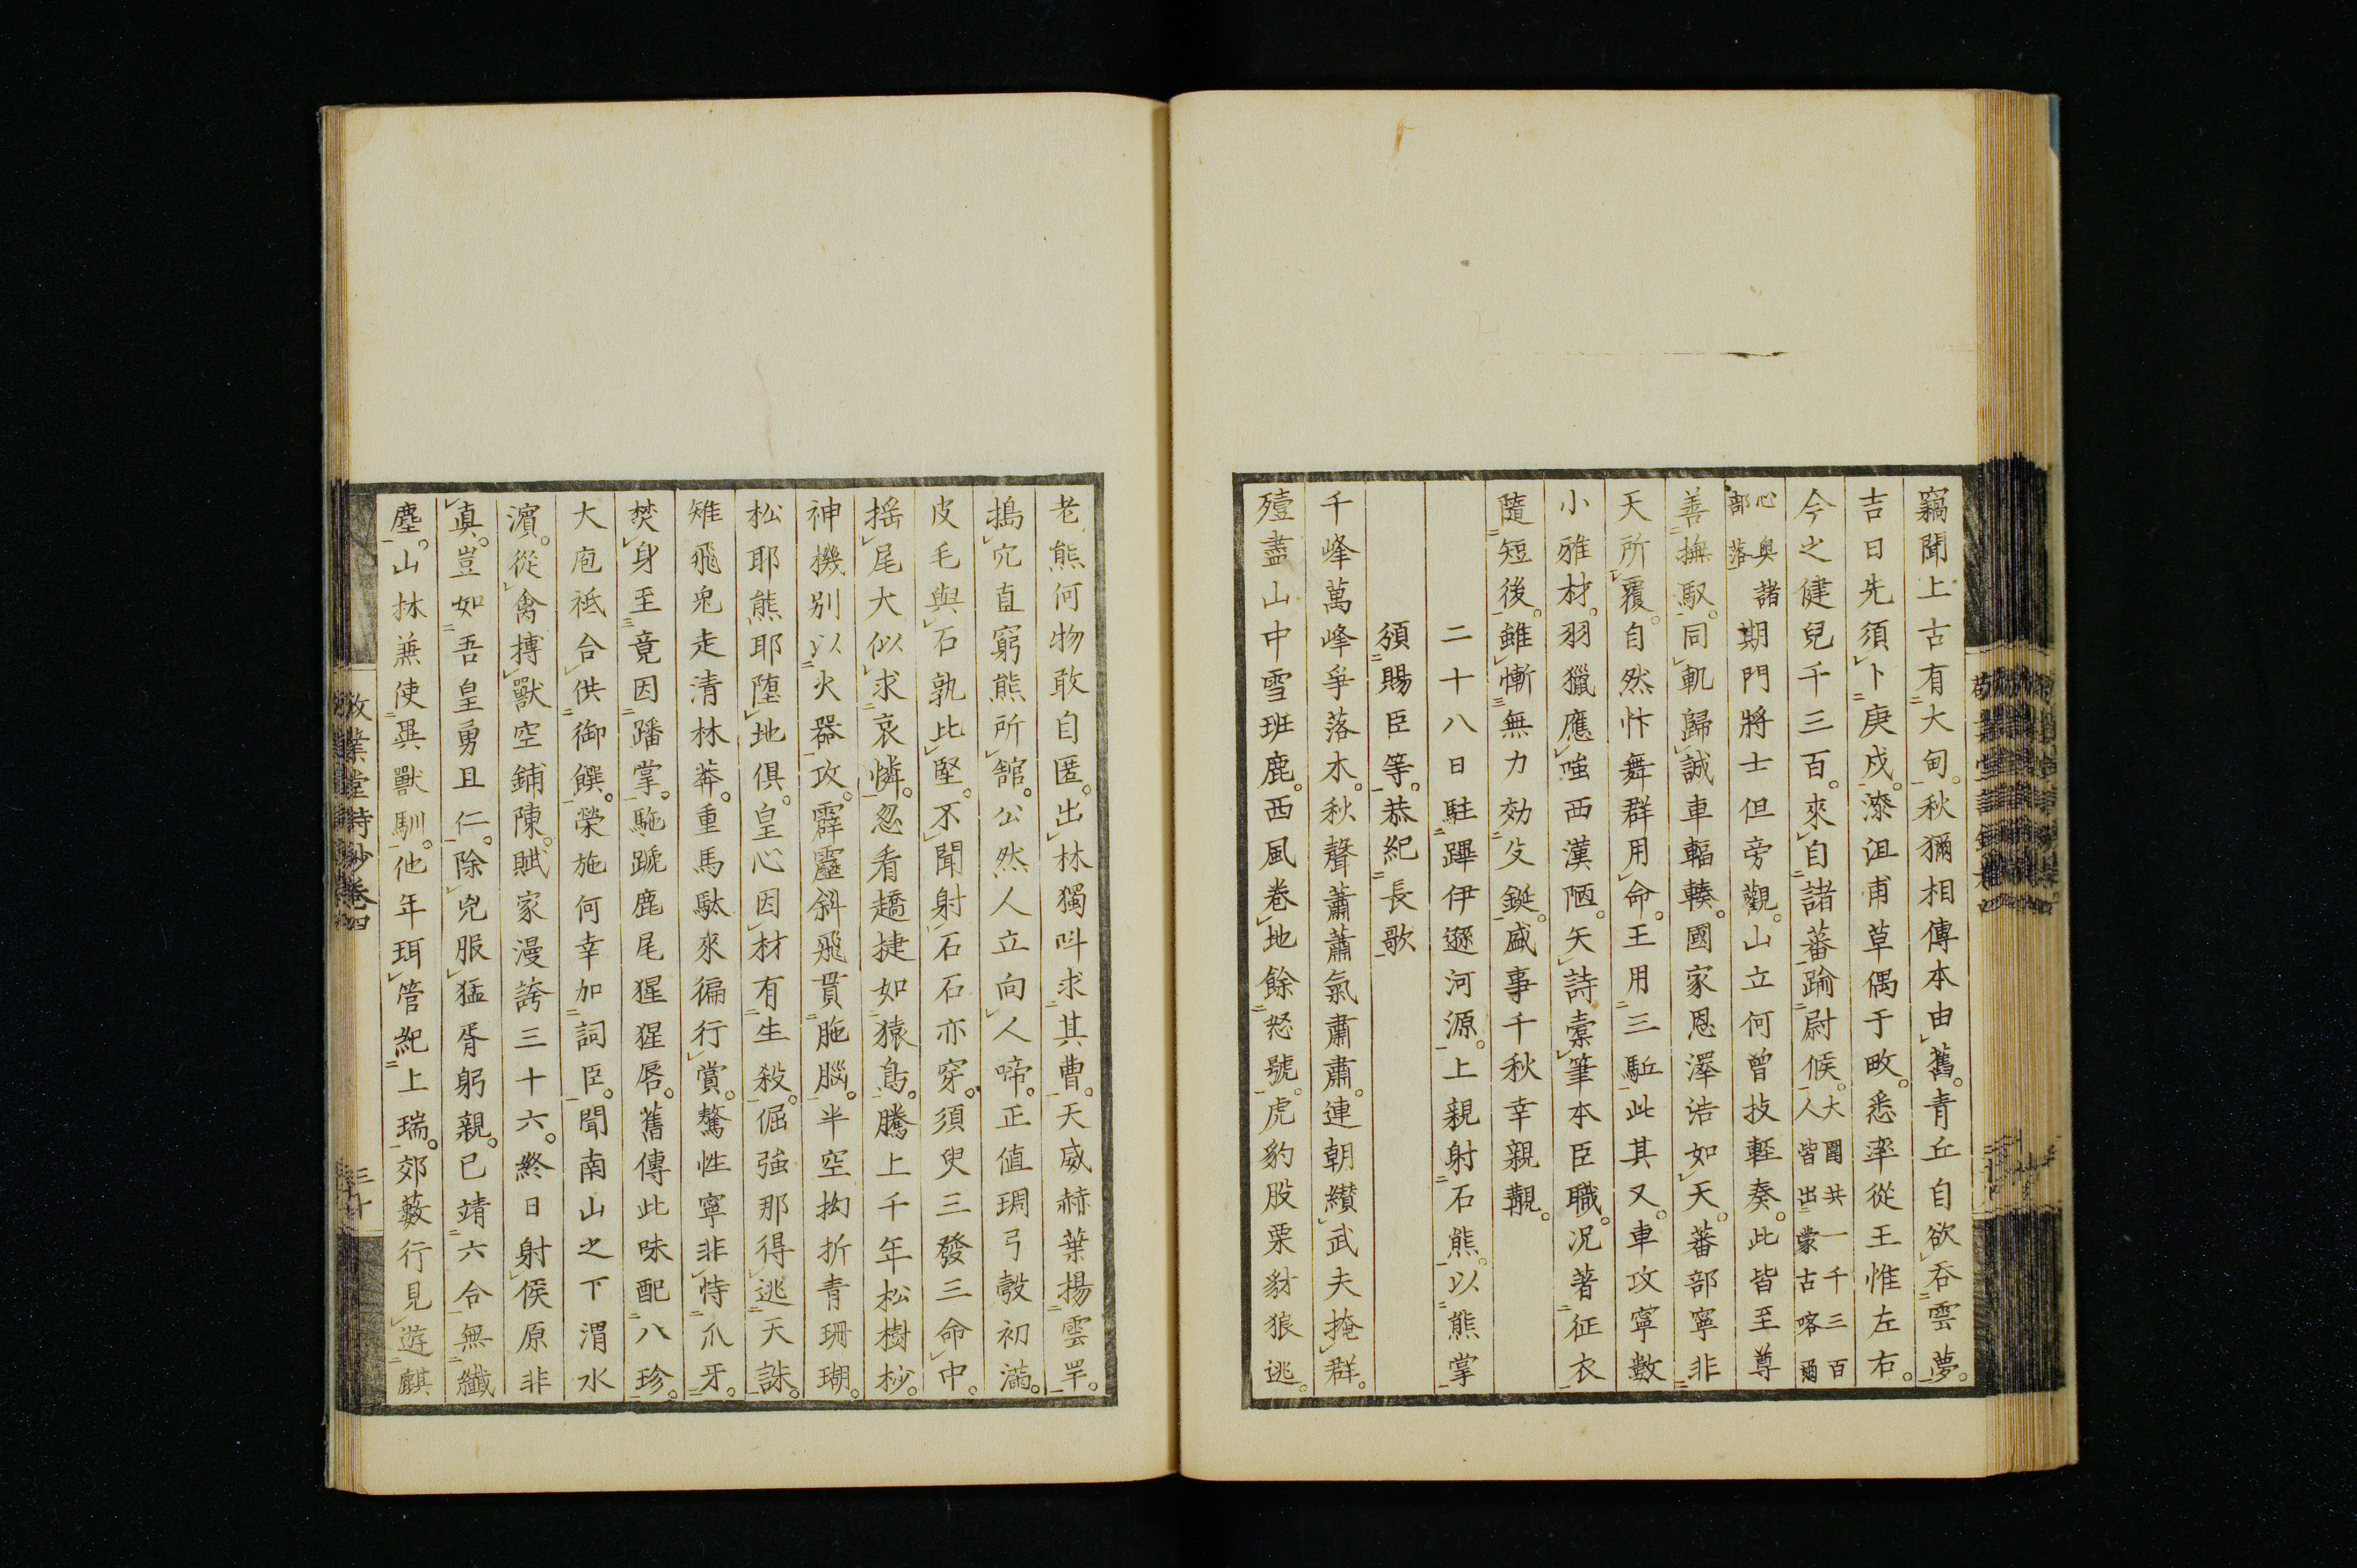 竊聞上古有大甸。秋獮相傳本由舊。青丘自欲吞雲夢。
吉日先須卜庚戌。漆沮甫草偶于畋。悉率從王惟左右。
今之健兒千三百。來自諸蕃踰尉候。大圍共一千三百人皆出蒙古喀爾
心奧諸部落期門將士但旁觀。山立何曾投輊奏。此皆至尊
善撫馭。同軌歸誠車輻輳。國家恩澤浩如天。蕃部寧非
天所覆。自然忭舞群用命。王用三驅此其又。車攻寧數
小雅材。羽獵應嗤西漢陋。矢詩橐筆本臣職。況著征衣
隨短後。雖慚無力効殳鋋。盛事千秋幸親覯。
二十八日駐蹕伊遜河源。上親射石熊。以熊掌
頒賜臣等。恭紀長歌
千峰萬峰爭落木。秋聲蕭蕭氣肅肅。連朝纘武夫掩群。
殪盡山中雪班鹿。西風卷地餘怒號。虎豹股栗豺狼逃。
老熊何物敢自匿。出林獨呌求其曹。天威赫葉揚雲罕。
搗穴直窮熊所館。公然人立向人啼。正值琱弓彀初滿。
皮毛與石孰比堅。不聞射石石亦穿。須臾三發三命中。
搖尾大似求哀憐。忽看趫捷如猿鳥。騰上千年松樹杪。
神機別以火器攻。霹靂斜飛貫胣腦。半空拗折青珊瑚。
松耶熊耶墮地俱。皇心因材有生殺。倔強那得逃天誅。
雉飛兎走清林莽。重馬馱來徧行賞。驁性寧非恃爪牙。
焚身至竟因蹯掌。駞蹏鹿尾猩猩唇。舊傳此味配八珍。
大庖祗合供御饌。榮施何幸加詞臣。聞南山之下渭水
濱。從禽搏獸空鋪陳。賦家漫誇三十六。終日射侯原非
眞。豈如吾皇勇且仁。除兇服猛胥躬親。已靖六合無纖
塵。山林兼使異獸馴。他年珥管紀上瑞。郊藪行見遊麒
敬業堂詩鈔卷四
三十